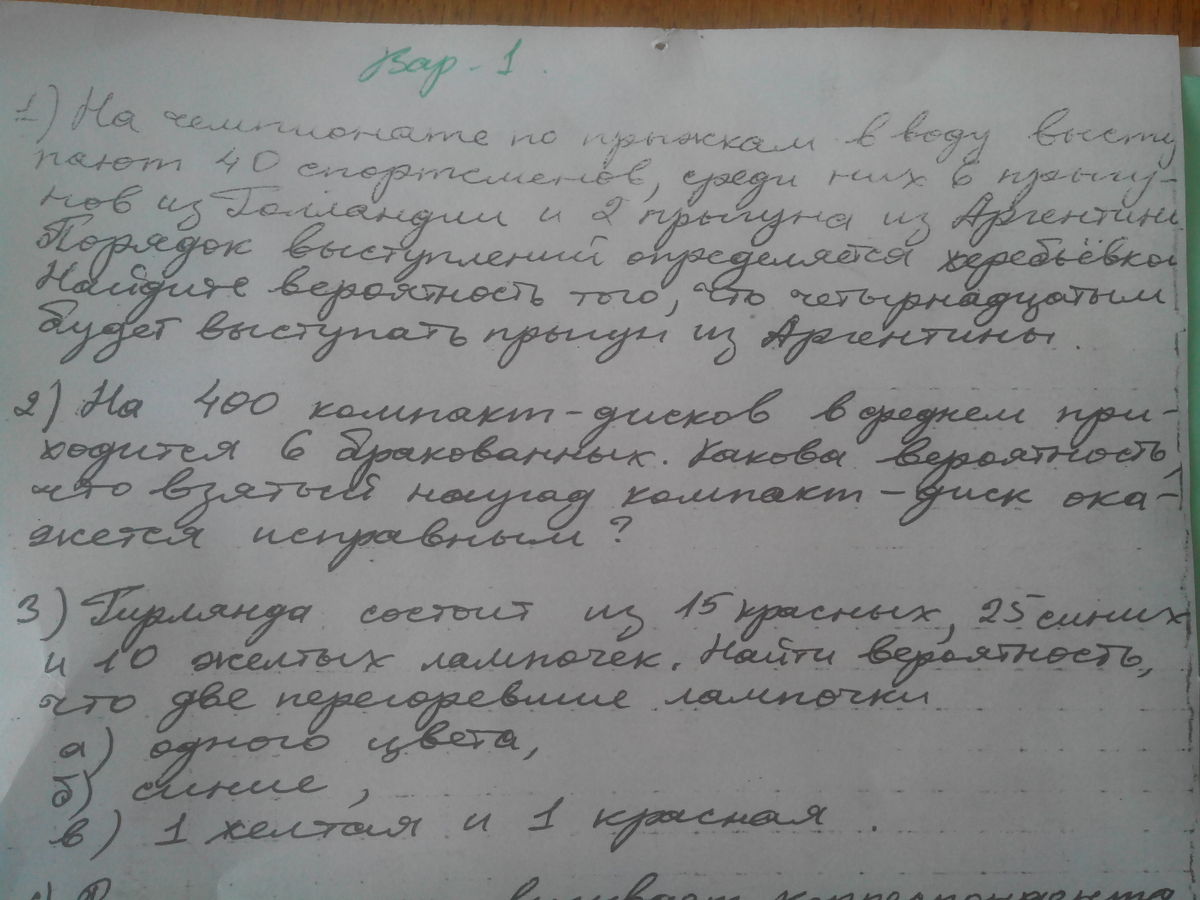 Вар - 1.
1) На чемпионате по прыжкам в воду высту
пают 40 спортсменов, среди них 6 прыгу-
нов из Голландии и 2 прыгуна из Аргентины
Порядок выступлений определяется жеребьёвкой
Найдите вероятность того, что четырнадцатым
будет выступать прыгун из Аргентины.
2) На 400 компакт-дисков в среднем при-
ходится 6 бракованных. Какова вероятность,
что взятый наугад компакт-диск ока-
жется исправным?
3) Гирлянда состоит из 15 красных, 25 синих
и 10 желтых лампочек. Найти вероятность,
что две перегоревшие лампочки
а) одного цвета,
б) синие,
в) 1 желтая и 1 красная.